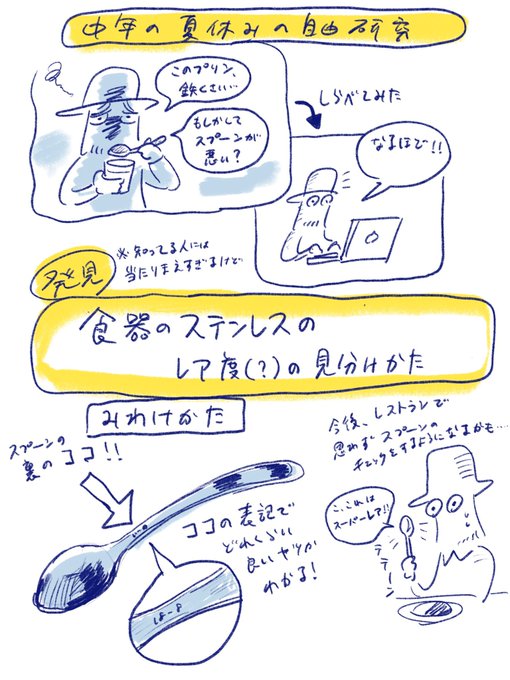 中年の夏休みの自由研究
このプリン、
鉄くさい…
もしかして
スプーンが
悪い？
しらべてみた
なるほど!!
発見
※知ってる人には
当たりまえすぎるけど
食器のステンレスの
レア度(?)の見分けかた
みわけかた
スプーンの
裏のココ!!
ココの表記で
どれくらい
良いヤツか
わかる!
18-8
今後、レストランで
思わずスプーンの
チェックをするようになるかも…
こ、これは
スーパーレア!!
テテーン